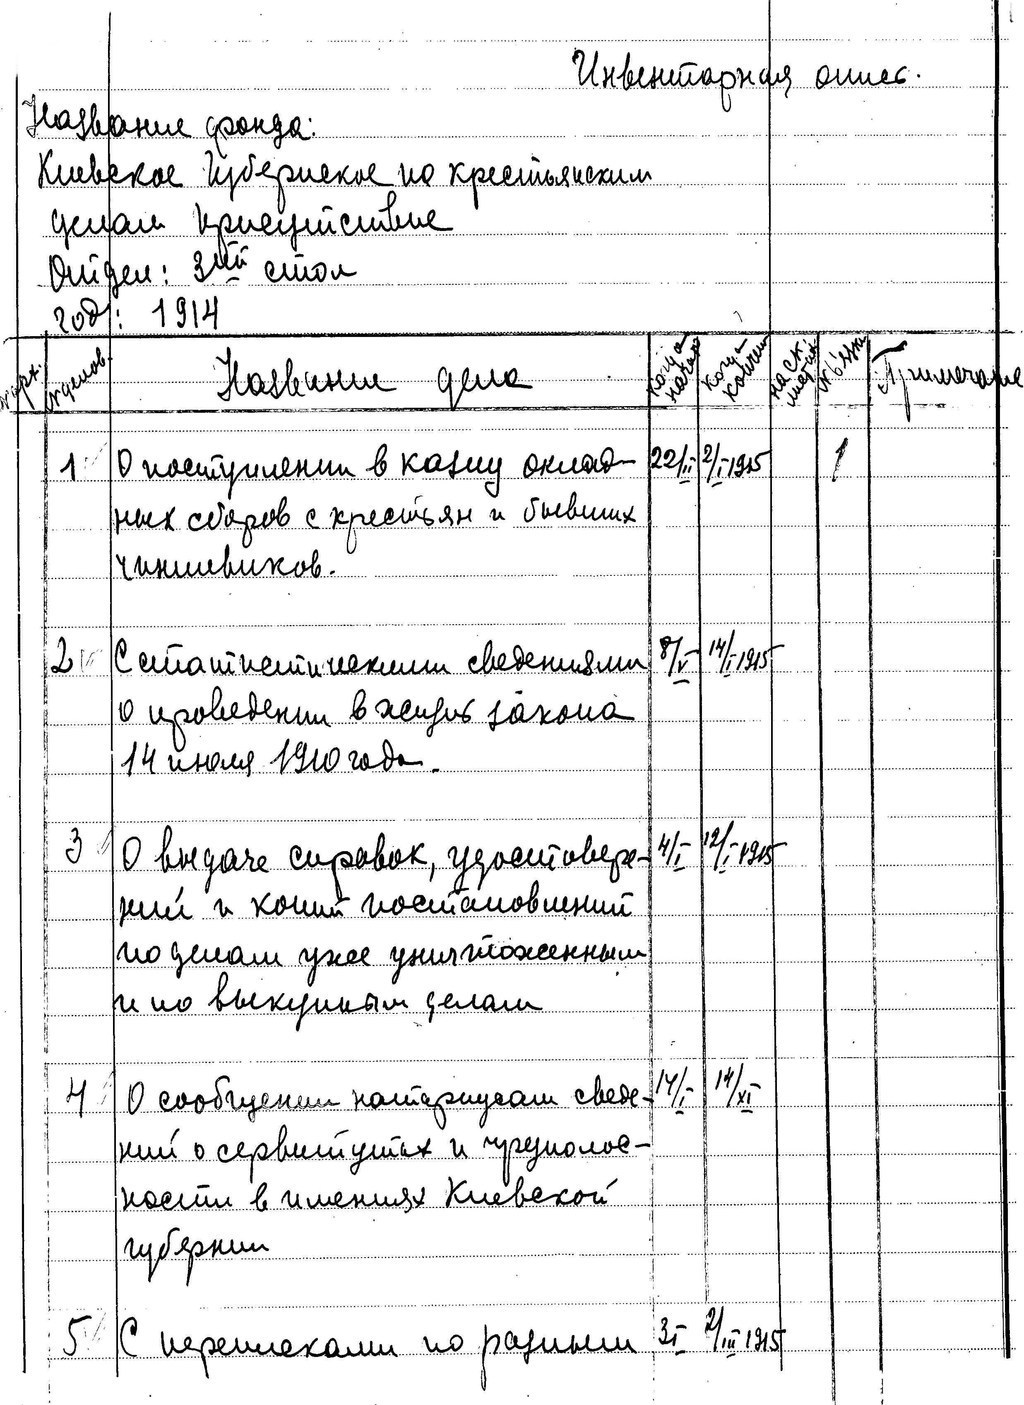 Инвентарная опись.
Название фонда:
Киевское Губернское по крестьянским
делам присутствие
Отдел: 3ий стол
год: 1914
№ арх. № делов. Название дела когда начато когда кончен на ск. листах № вязки Примечание
1 О поступлении в казну оклад- 22/II 2/I 1915 1
ных сборов с крестьян и бывших
чиншевиков.
2 С статистическими сведениями 8/V 14/I 1915
о проведении в жизнь закона
14 июля 1910 года.
3 О выдаче справок, удостовере- 4/I 12/I 1915
ний и копий постановлений
по делам уже уничтоженным
и по выкупным делам
4 О сообщении нотариусам сведе- 14/I 14/XI
ний о сервитутах и чрезполос-
ности в имениях Киевской
губернии
5 С переписками по разным 3I 2/III 1915